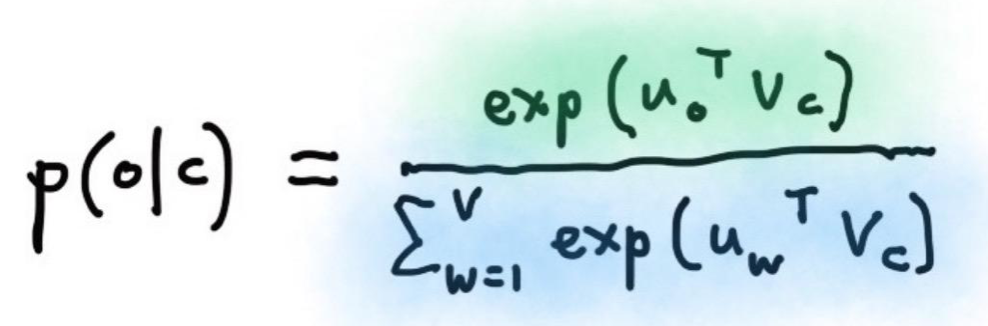 p(o|c) = exp(u_o^T V_c) / ∑_{w=1}^V exp(u_w^T V_c)